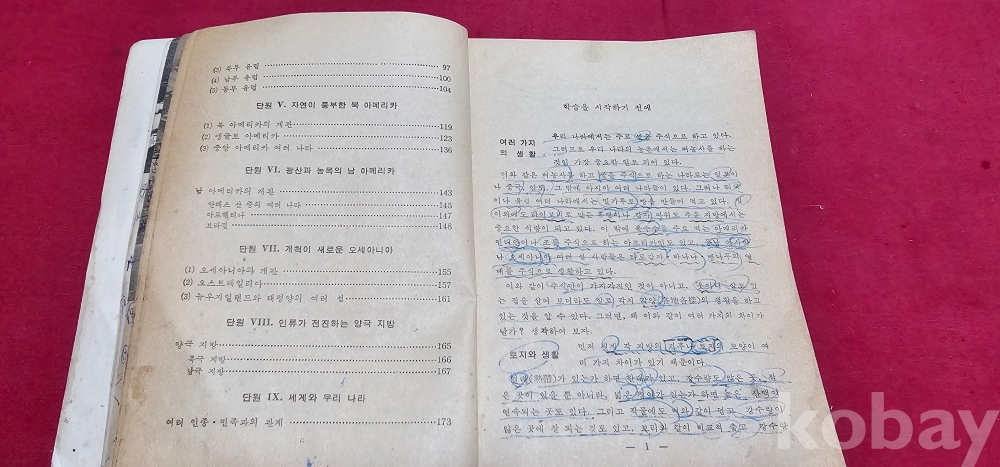 (3) 북부 유럽 97
(4) 남부 유럽 100
(5) 동부 유럽 104
단원 V. 자연이 풍부한 북 아메리카
(1) 북 아메리카의 개관 119
(2) 앵글로 아메리카 123
(3) 중앙 아메리카 여러 나라 136
단원 VI. 광산과 농목의 남 아메리카
남 아메리카의 개관 143
안데스 산 중의 여러 나라 145
아르헨티나 147
브라질 148
단원 VII. 개척이 새로운 오세아니아
(1) 오세아니아의 개관 155
(2) 오스트레일리아 157
(3) 뉴우지일랜드와 태평양의 여러 섬 161
단원 VIII. 인류가 전진하는 양극 지방
양극 지방 165
북극 지방 166
남극 지방 167
단원 IX. 세계와 우리 나라
여러 인종·민족과의 관계 173
학습을 시작하기 전에
여러 가지
의 생활
우리 나라에서는 주로 쌀을 주식으로 하고 있다.
그러므로 우리 나라의 농촌에서는 벼농사를 하는
것이 가장 중요한 일로 되어 있다.
이와 같은 벼농사를 하고 쌀을 주식으로 하는 나라로는 일본이
나 중국, 인도, 그 밖에 아시아 여러 나라들이 있다. 그러나
이나 유럽 여러 나라에서는 밀가루로 빵을 만들어 먹고 있다.
이외에도 라이보리로 만든 지방에서는
중요한 식량이 되고 있다. 이 밖에 옥수수를 주로 먹는 아메리카
인디언이나 조를 주식으로 하는 아프리카인도 있고,
나 오세아니아 여러 섬 사람들은 바나나, 빵나무의 열
매를 주식으로 생활하고 있다.
이와 같이 주식만이 가지가지인 것이 아니고,
는 집을 살펴 보더라도 실로 각지 각양(各地各樣)의 생활을 하고
있는 것을 알 수 있다. 그러면, 왜 이와 같이 여러 가지의 차이가
날까? 생각하여 보자.
토지와 생활
먼저 세계 각 지방의 기후나 토지의 모양이 여
러 가지 차이가 있기 때문이다.
열대(熱帶)가 있는가 하면 한대가 있고, 강수량도 많은 곳, 적
은 곳이 있을 뿐 아니라, 넓은 평야가 있는가 하면 높은 산맥이
연속되는 곳도 있다. 그리고 작물에도 벼와 같이 덥고 강수량이
많은 곳에 잘 되는 것도 있고, 보리와 같이 비교적 춥고 강수량
— 1 —
kobay